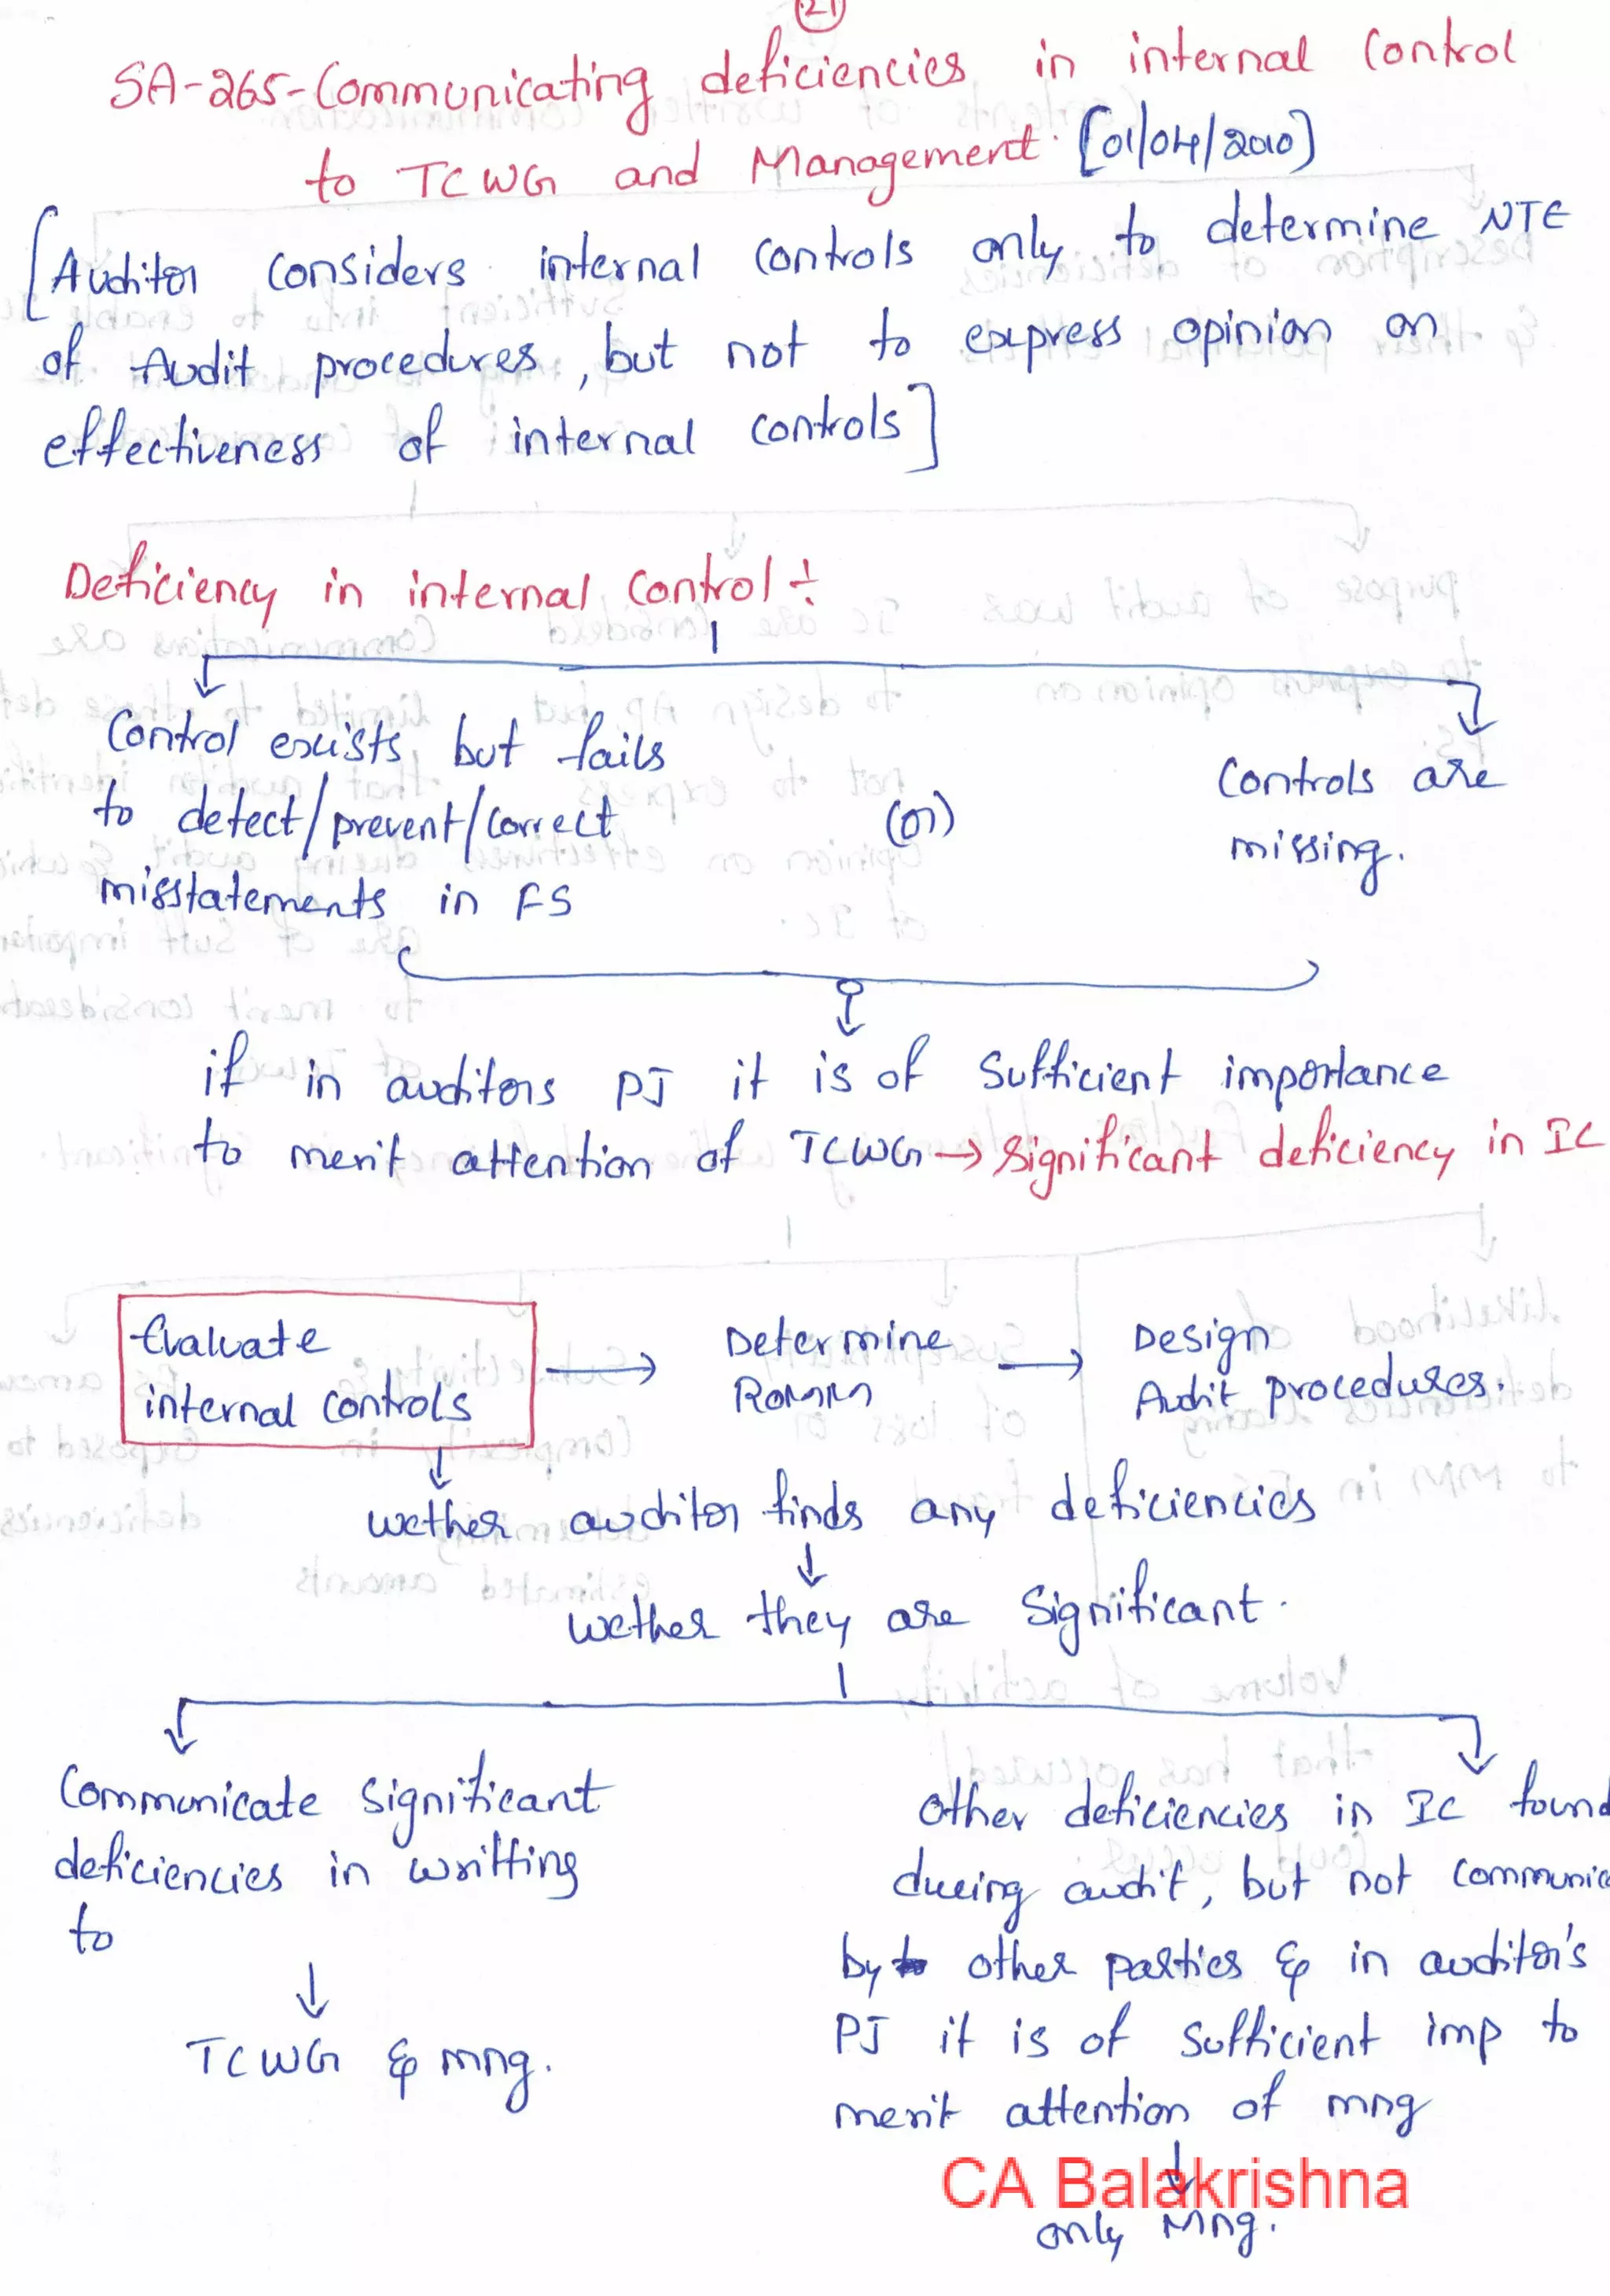 21
SA-265-Communicating deficiencies in internal control
to TCWG and Management. [01/04/2010]
[Auditor considers internal controls only to determine NTE
of Audit procedures, but not to express opinion on
effectiveness of internal controls]
Deficiency in internal control ÷
Control exists but fails
to detect/prevent/correct
misstatements in FS
(or)
Controls are
missing.
if in auditors PJ it is of sufficient importance
to merit attention of TCWG → significant deficiency in IC
Evaluate
internal controls
→ Determine
ROMM
→ Design
Audit procedures.
wether auditor finds any deficiencies
wether they are significant.
Communicate significant
deficiencies in writting
to
TCWG & mng.
Other deficiencies in IC found
during audit, but not communic
by other parties & in auditor's
PJ it is of sufficient imp to
merit attention of mng
only Mng.
CA Balakrishna